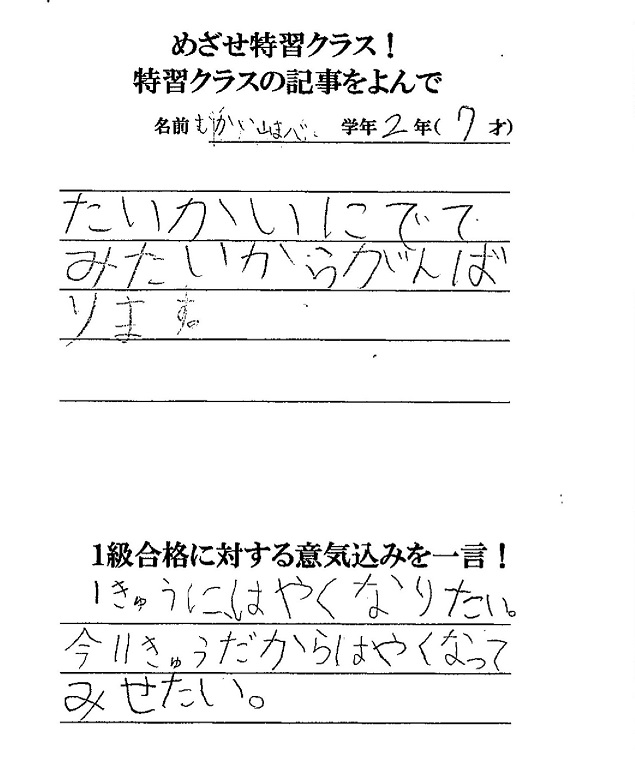 めざせ特習クラス！
特習クラスの記事をよんで
名前 学年2年(7才)
たいかいにでて
みたいからがんば
ります。
1級合格に対する意気込みを一言！
1きゅうに、はやくなりたい。
今11きゅうだからはやくなって
みせたい。